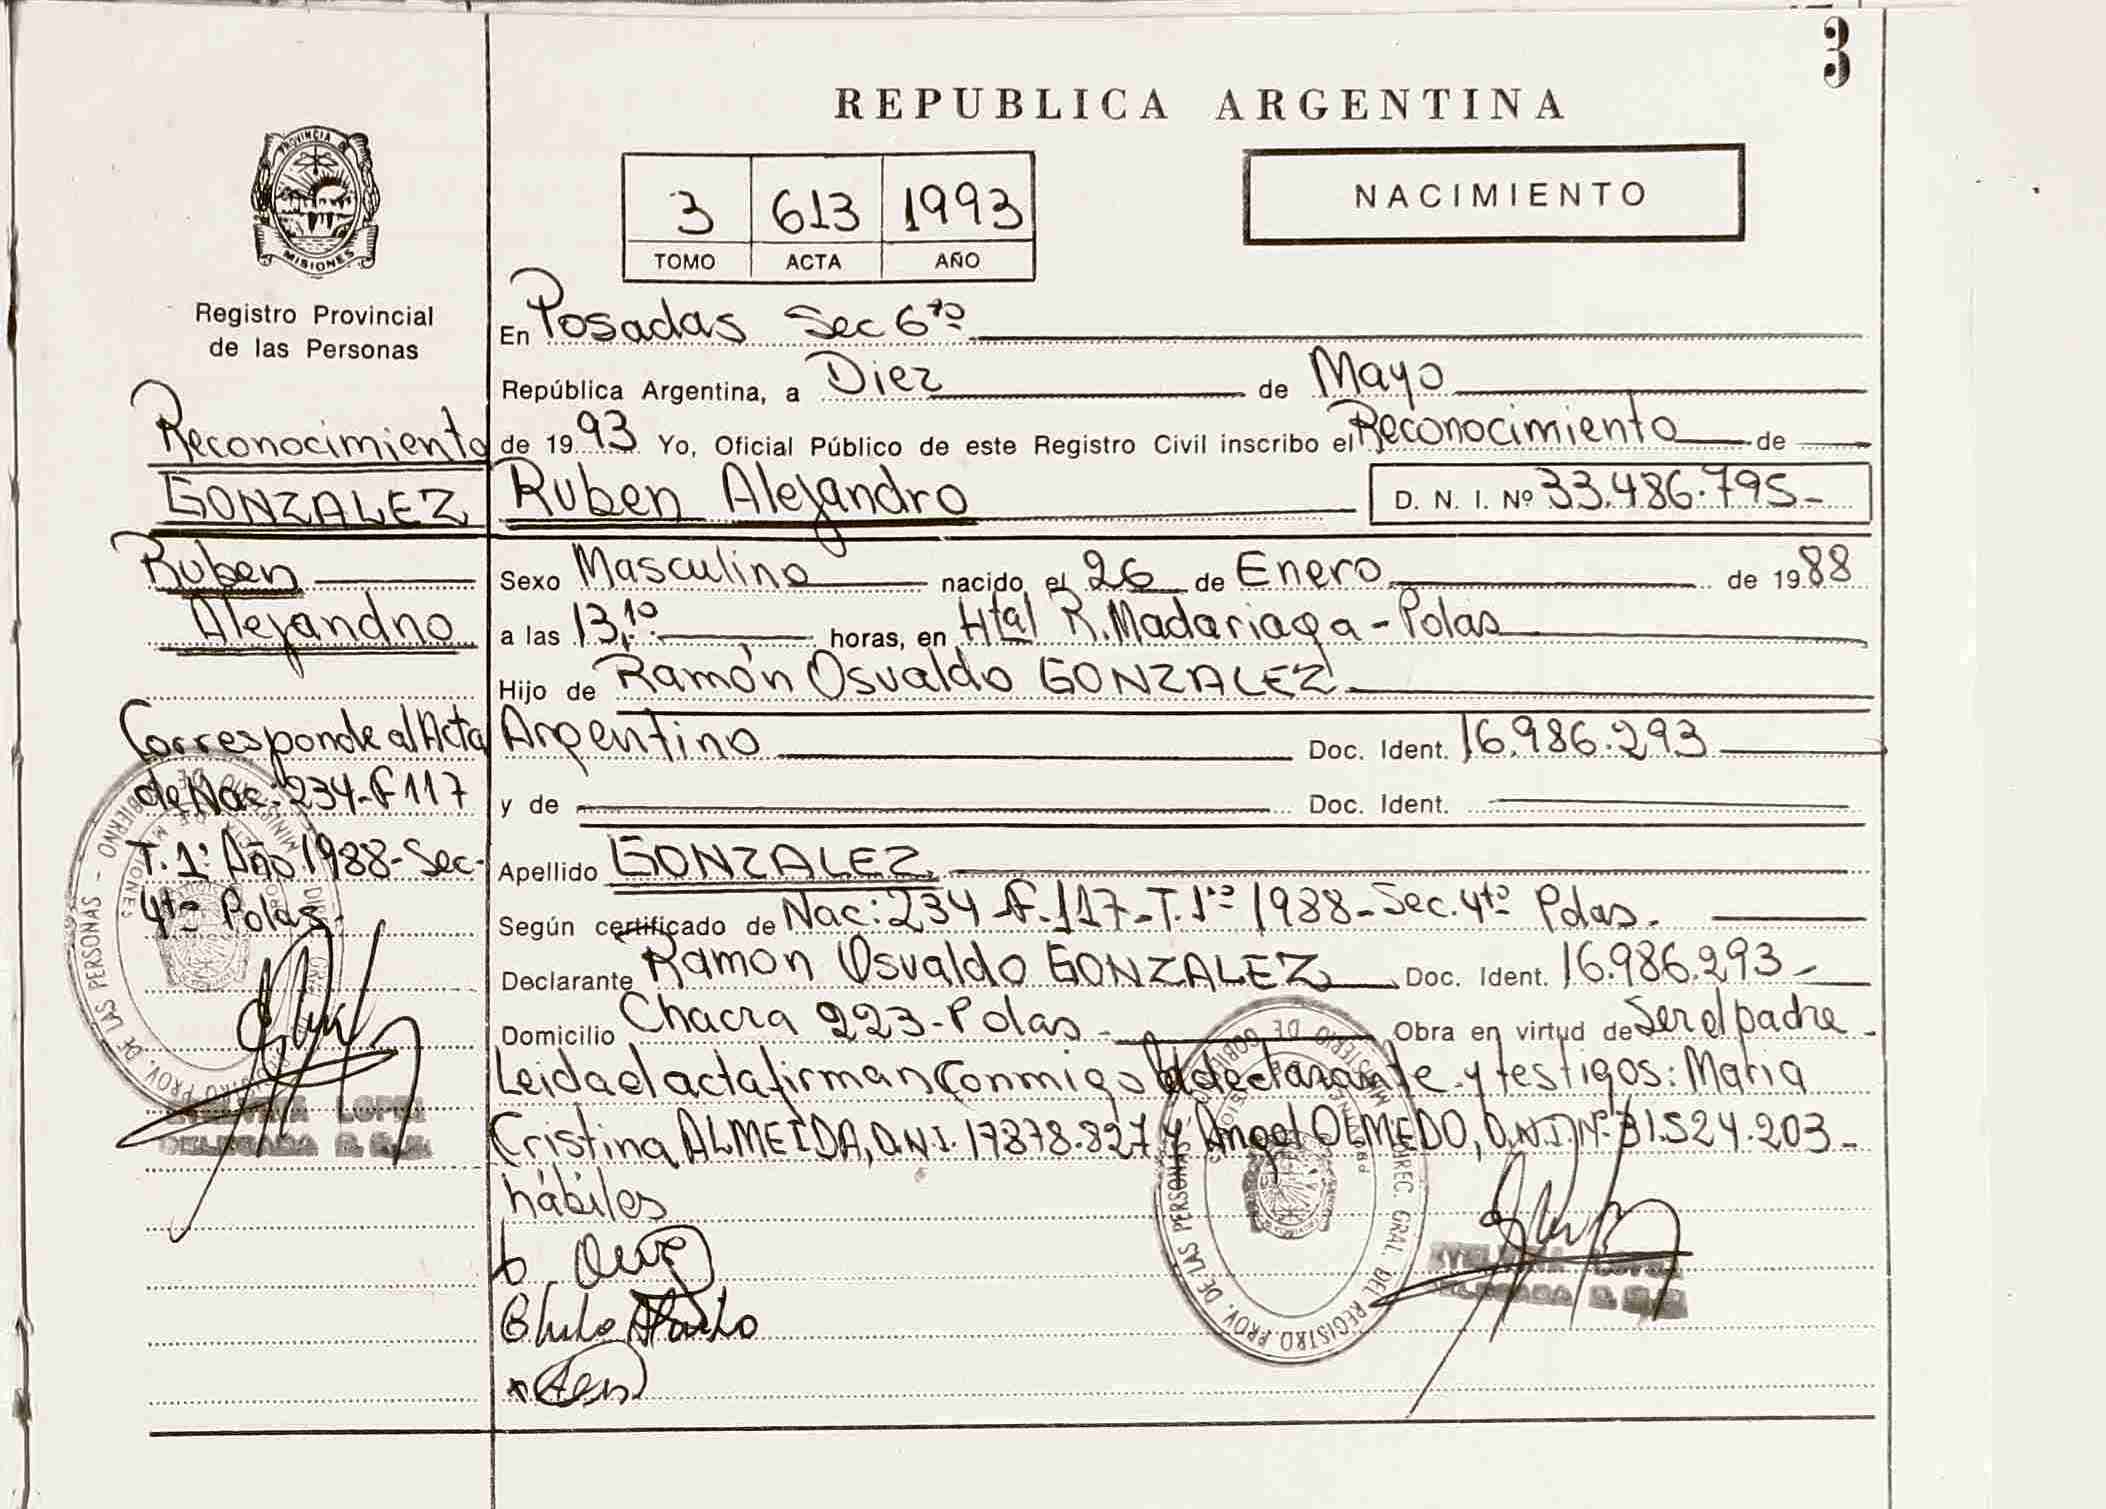 3
REPUBLICA ARGENTINA
PROVINCIA DE
MISIONES
Registro Provincial
de las Personas
3 613 1993
TOMO ACTA AÑO
NACIMIENTO
En Posadas Sec 6ta
República Argentina, a Diez de Mayo
de 1993 Yo, Oficial Público de este Registro Civil inscribo el Reconocimiento de
Ruben Alejandro D. N. I. Nº 33.486.795-
Sexo Masculino nacido el 26 de Enero de 1988
a las 13,10 horas, en Htal R. Madariaga - Pdas
Hijo de Ramón Osvaldo GONZALEZ
Argentino Doc. Ident. 16.986.293
y de Doc. Ident.
Apellido GONZALEZ
Según certificado de Nac: 234-f. 117-T. 1ro 1988-Sec. 4ta Pdas.
Declarante Ramon Osvaldo GONZALEZ Doc. Ident. 16.986.293
Domicilio Chacra 223-Pdas- Obra en virtud de Ser el padre-
Leida el acta firman conmigo el declarante y testigos: Maria
Cristina ALMEIDA, D.N.I. 17878.827 y Angel OLMEDO, D.N.I. Nº 31.524.203-
hábiles
Reconocimiento
GONZALEZ
Ruben
Alejandro
Corresponde al Acta
de Nac: 234-f 117
T. 1º Año 1988-Sec-
4ta Pdas.
LOPEZ
DELEGADA
DIREC. GRAL. DEL REGISTRO PROV. DE LAS PERSONAS
MINISTERIO DE GOBIERNO
LOPEZ
DELEGADA